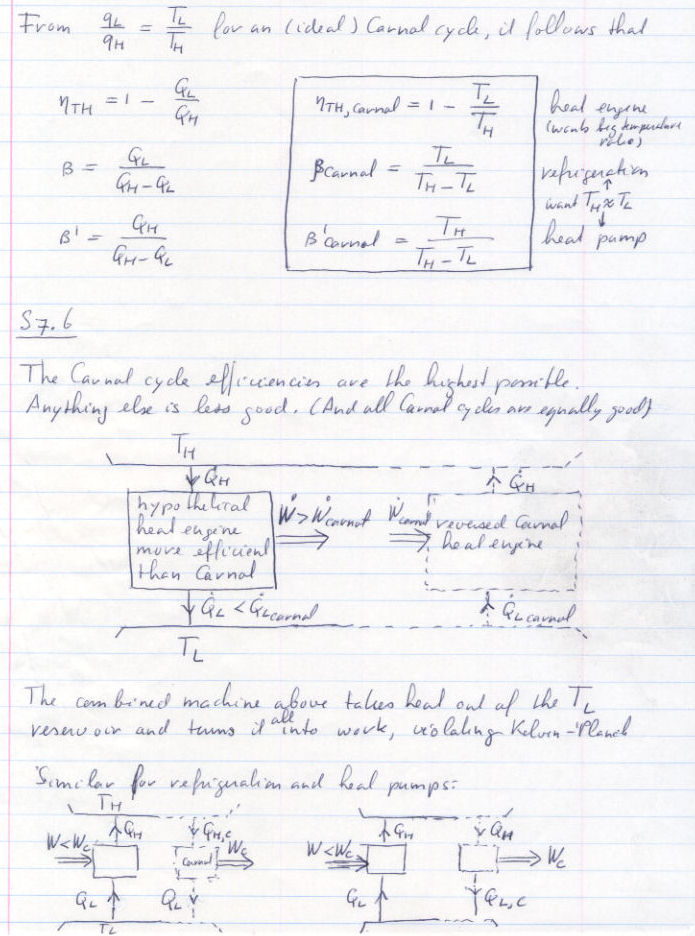 From qL/qH = TL/TH for an (ideal) Carnot cycle, it follows that
ηTH = 1 - QL/QH
ηTH, carnot = 1 - TL/TH
heat engine
(wants big temperature
ratio)
β = QL/(QH-QL)
βcarnot = TL/(TH-TL)
refrigeration
want TH≈TL
β' = QH/(QH-QL)
β'carnot = TH/(TH-TL)
heat pump
S 7.6
The Carnot cycle efficiencies are the highest possible.
Anything else is less good. (And all Carnot cycles are equally good)
TH
Q̇H
Q̇H
hypothetical
heat engine
more efficient
than Carnot
Ẇ > Ẇcarnot
Ẇcarnot
reversed Carnot
heat engine
Q̇L < Q̇Lcarnot
Q̇L carnot
TL
The combined machine above takes heat out of the TL
reservoir and turns it all into work, violating Kelvin-Planck
Similar for refrigeration and heat pumps:
TH
QH
QH,C
QH
QH
W<Wc
Carnot
Wc
W<Wc
Wc
QL
QL
QL
QL,C
TL